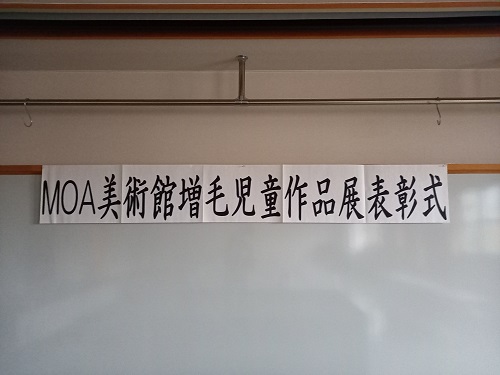 MOA美術館増毛児童作品展表彰式